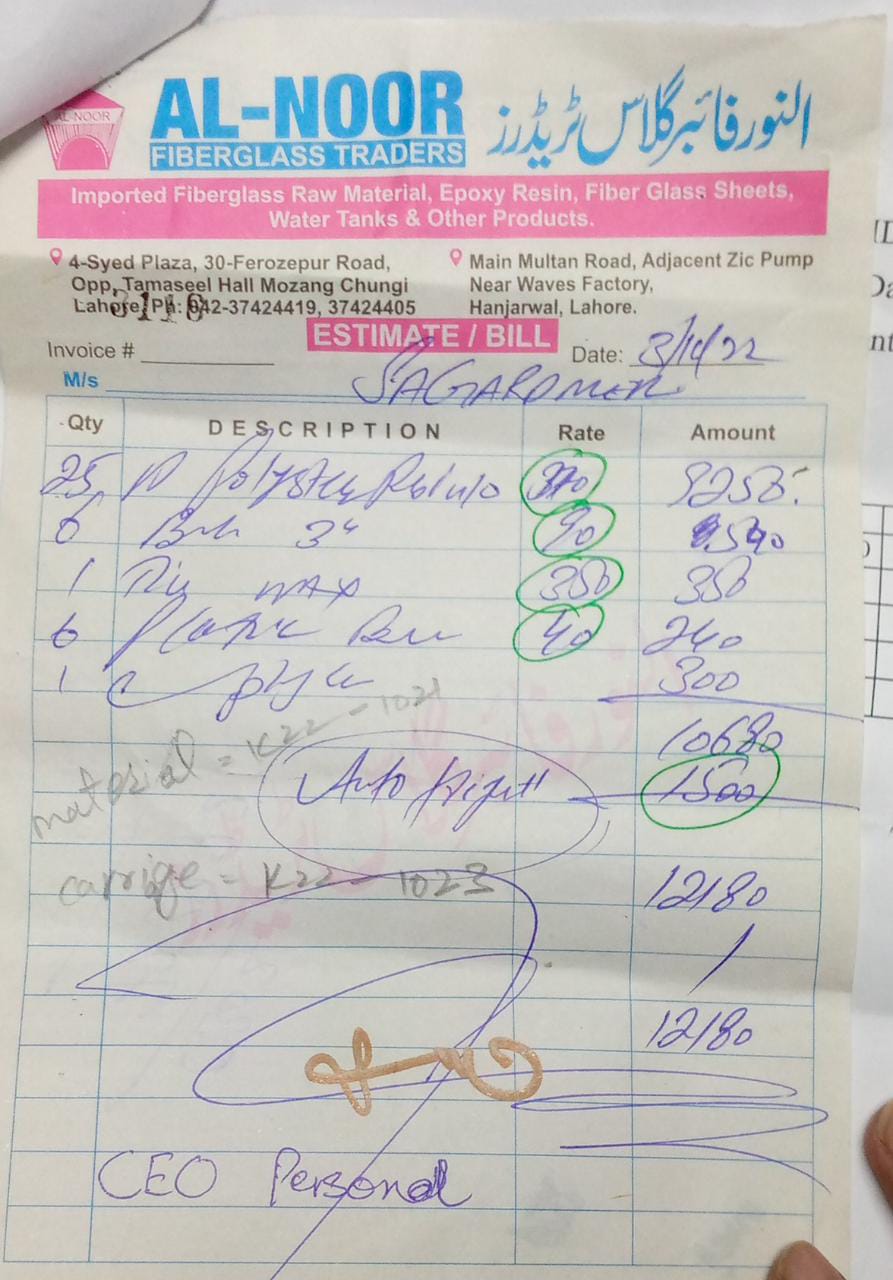 AL-NOOR
AL-NOOR
FIBERGLASS TRADERS
النور فائبر گلاس ٹریڈرز
Imported Fiberglass Raw Material, Epoxy Resin, Fiber Glass Sheets,
Water Tanks & Other Products.
4-Syed Plaza, 30-Ferozepur Road,
Opp, Tamaseel Hall Mozang Chungi
Lahore, Ph: 042-37424419, 37424405
Main Multan Road, Adjacent Zic Pump
Near Waves Factory,
Hanjarwal, Lahore.
ESTIMATE / BILL
Invoice #
Date:
M/s
Qty DESCRIPTION Rate Amount
25 370 9250
6 3" 90 540
1 WAX 350 350
6 40 240
1 300
10680
material = K22 - 1021
Auto 1500
carrige = K22 - 1023
12180
12180
CEO Personal